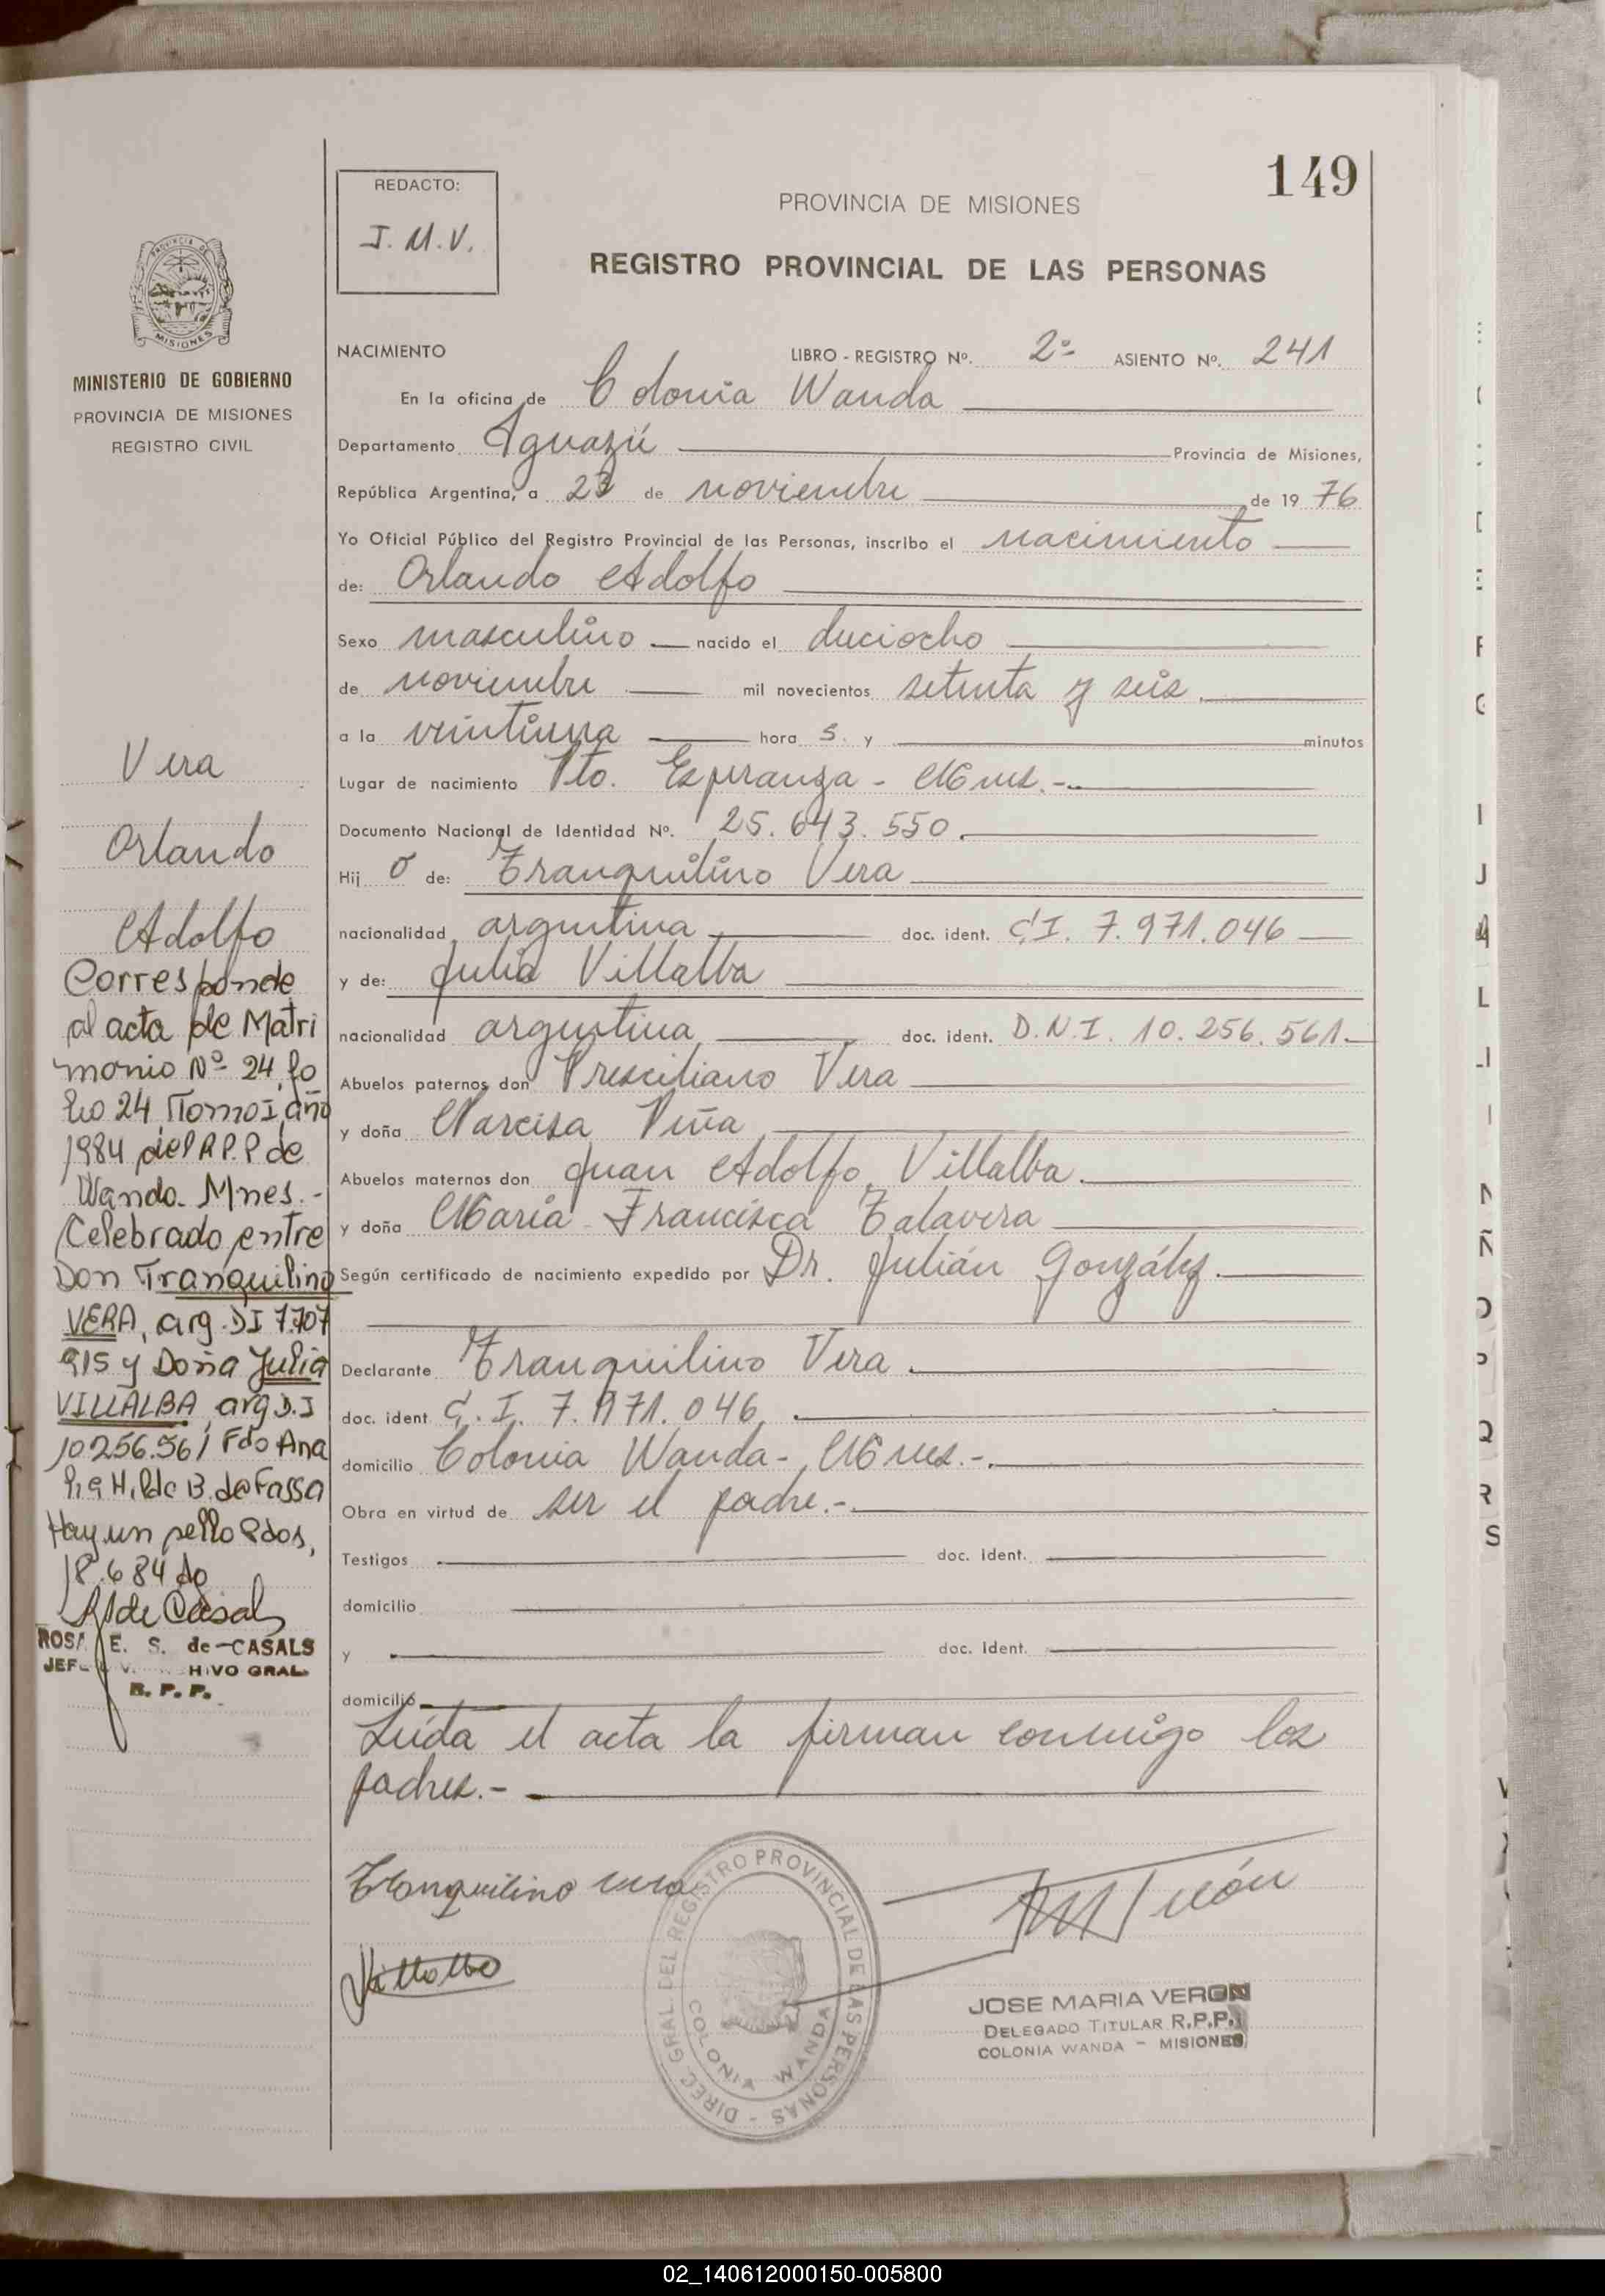 149
REDACTO:
J. M. V.
PROVINCIA DE MISIONES
REGISTRO PROVINCIAL DE LAS PERSONAS
MISIONES
MINISTERIO DE GOBIERNO
PROVINCIA DE MISIONES
REGISTRO CIVIL
Vera
Orlando
Adolfo
Corresponde
al acta de Matri
monio Nº 24 fo
lio 24 Tomo I, año
1984 del R.P.P de
Wanda. Mnes.-
Celebrado entre
Don Tranquilino
VERA, arg. DI 7.707
915 y Doña Julia
VILLALBA arg D.I
10256.561 Fdo Ana
H. de B. de Fassa
Hay un sello Pdos,
18.6 84 do
ROSA E. S. de CASALS
HIVO GRAL.
R. P. P.
NACIMIENTO LIBRO - REGISTRO Nº. 2º ASIENTO Nº. 241
En la oficina de Colonia Wanda
Departamento Iguazú Provincia de Misiones,
República Argentina, a 23 de noviembre de 19 76
Yo Oficial Público del Registro Provincial de las Personas, inscribo el nacimiento
de: Orlando Adolfo
Sexo masculino nacido el dieciocho
de noviembre mil novecientos setenta y seis
a la veintiuna hora s y minutos
Lugar de nacimiento Pto. Esperanza - Mnes.-
Documento Nacional de Identidad Nº. 25.643.550.
Hij o de: Tranquilino Vera
nacionalidad argentina doc. ident. C.I. 7.971.046
y de: Julia Villalba
nacionalidad argentina doc. ident. D.N.I. 10.256.561.-
Abuelos paternos don Presciliano Vera
y doña Narcisa Piña
Abuelos maternos don Juan Adolfo Villalba.
y doña María Francisca Talavera
Según certificado de nacimiento expedido por Dr. Julián González.
Declarante Tranquilino Vera.
doc. ident C.I. 7.971.046.
domicilio Colonia Wanda - Mnes.-
Obra en virtud de ser el padre.-
Testigos doc. Ident.
domicilio
y doc. Ident.
domicilio
Leída el acta la firman conmigo los
padres.-
Tranquilino Vera
Villalba
DIREC. GRAL. DEL REGISTRO PROVINCIAL DE LAS PERSONAS -
COLONIA WANDA
JOSE MARIA VERON
DELEGADO TITULAR R.P.P.
COLONIA WANDA - MISIONES
02_140612000150-005800